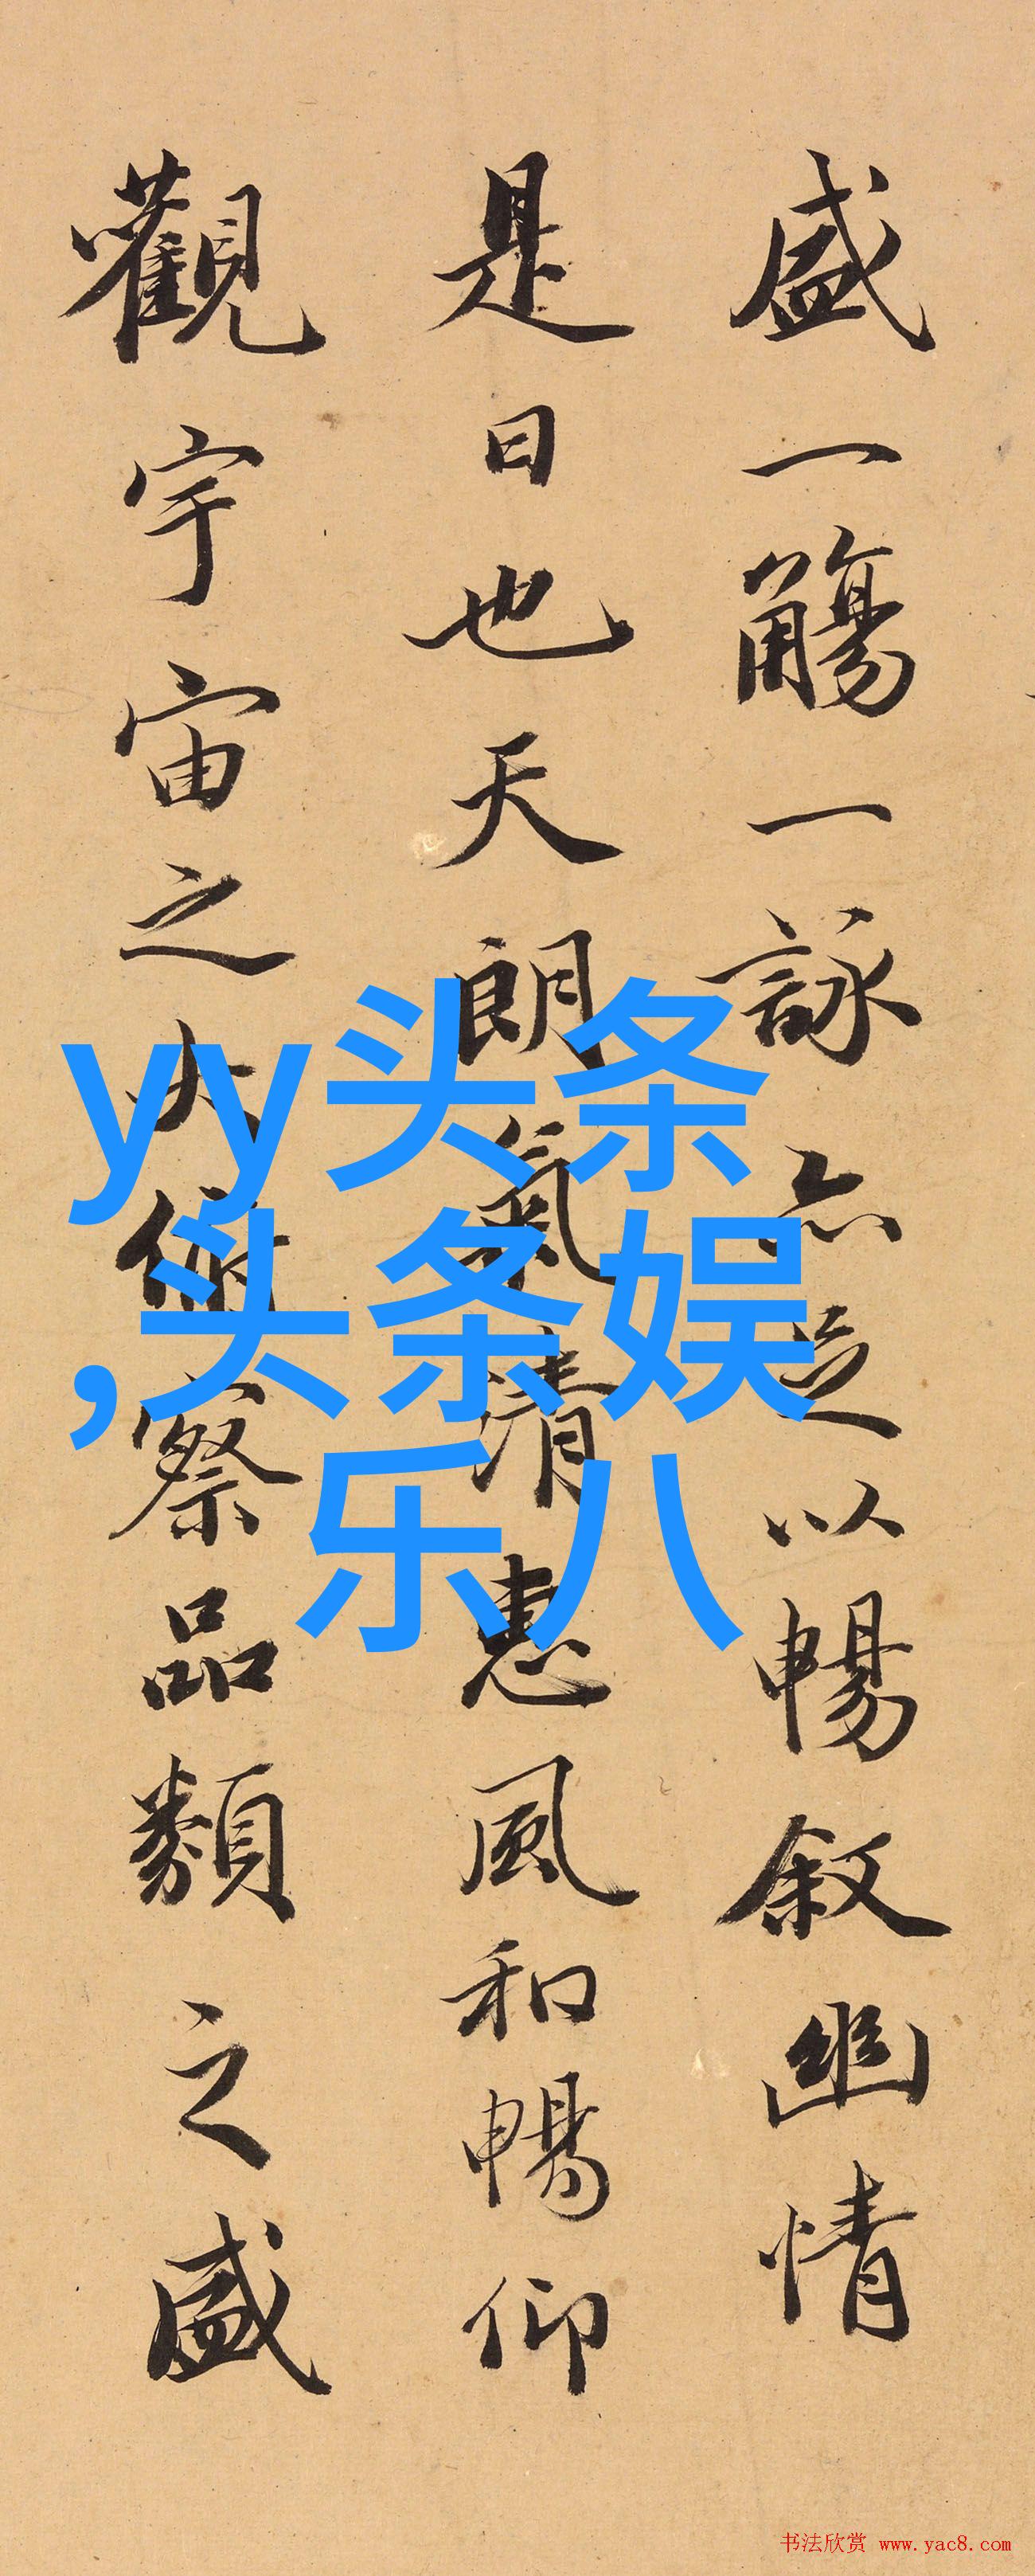 盛一觴一詠亦足以暢敘幽情
是日也天朗氣清惠風和暢仰
觀宇宙之大俯察品類之盛
yy头条
,头条娱
乐八
书法欣赏 www.yac8.com